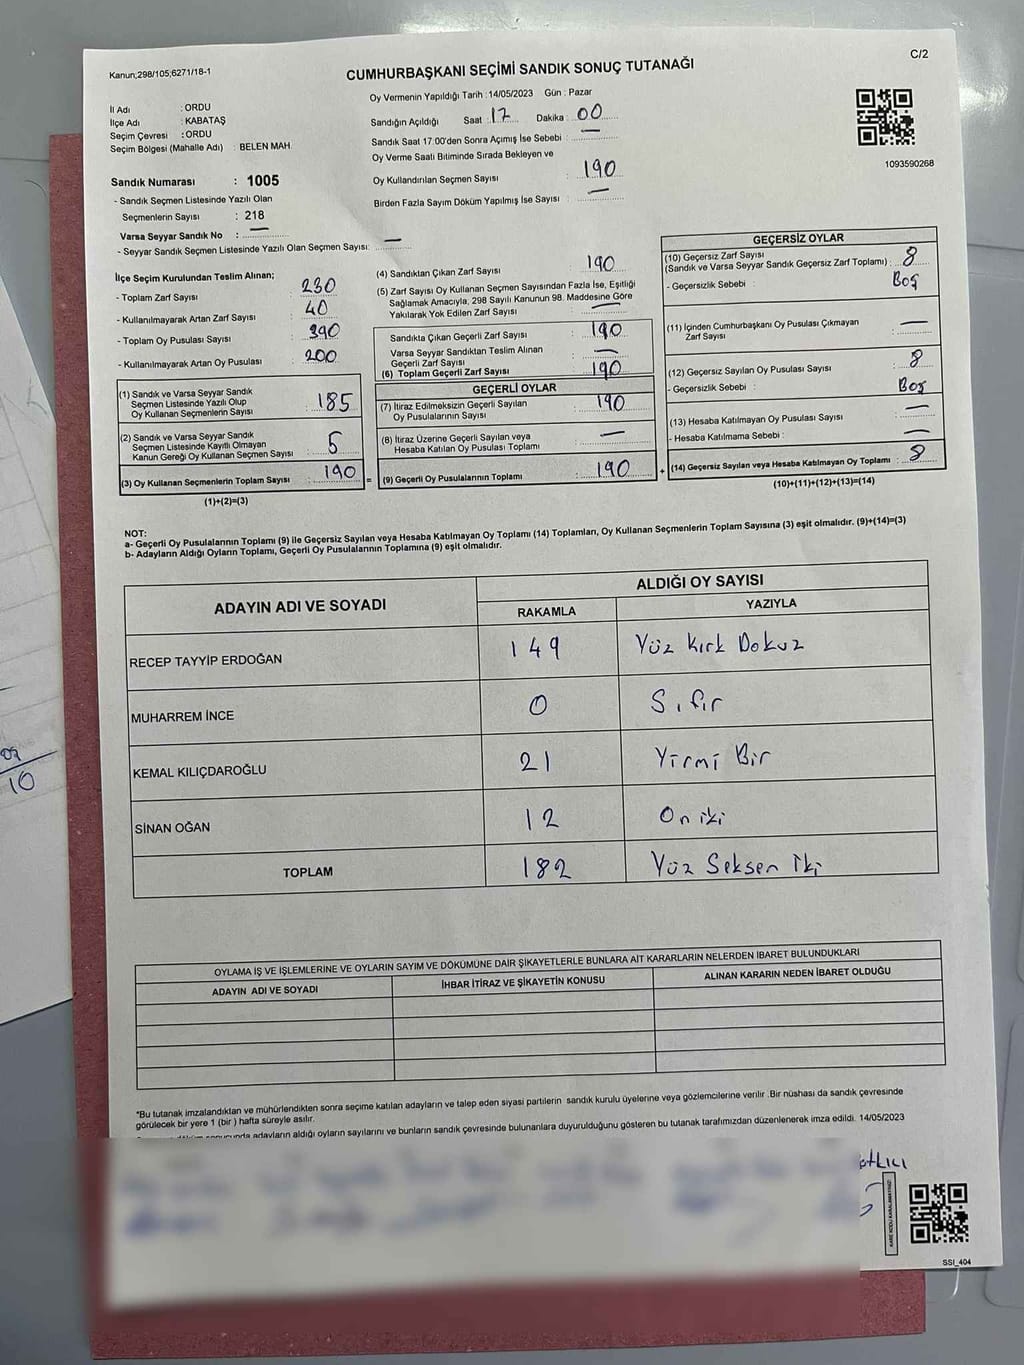 Kanun;298/105;6271/18-1
C/2
CUMHURBAŞKANI SEÇİMİ SANDIK SONUÇ TUTANAĞI
Oy Vermenin Yapıldığı Tarih :14/05/2023 Gün : Pazar
İl Adı : ORDU
İlçe Adı : KABATAŞ
Seçim Çevresi : ORDU
Seçim Bölgesi (Mahalle Adı) : BELEN MAH.
Sandığın Açıldığı Saat : 17 Dakika : 00
Sandık Saat 17.00'den Sonra Açımış İse Sebebi : —
Oy Verme Saati Bitiminde Sırada Bekleyen ve
Oy Kullandırılan Seçmen Sayısı : 190
Birden Fazla Sayım Döküm Yapılmış İse Sayısı : —
1093590268
Sandık Numarası : 1005
- Sandık Seçmen Listesinde Yazılı Olan
Seçmenlerin Sayısı : 218
Varsa Seyyar Sandık No : —
- Seyyar Sandık Seçmen Listesinde Yazılı Olan Seçmen Sayısı: —
İlçe Seçim Kurulundan Teslim Alınan;
- Toplam Zarf Sayısı : 230
- Kullanılmayarak Artan Zarf Sayısı : 40
- Toplam Oy Pusulası Sayısı : 390
- Kullanılmayarak Artan Oy Pusulası : 200
(1) Sandık ve Varsa Seyyar Sandık
Seçmen Listesinde Yazılı Olup
Oy Kullanan Seçmenlerin Sayısı : 185
(2) Sandık ve Varsa Seyyar Sandık
Seçmen Listesinde Kayıtlı Olmayan
Kanun Gereği Oy Kullanan Seçmen Sayısı : 5
(3) Oy Kullanan Seçmenlerin Toplam Sayısı : 190
(1)+(2)=(3)
(4) Sandıktan Çıkan Zarf Sayısı : 190
(5) Zarf Sayısı Oy Kullanan Seçmen Sayısından Fazla İse, Eşitliği
Sağlamak Amacıyla, 298 Sayılı Kanunun 98. Maddesine Göre
Yakılarak Yok Edilen Zarf Sayısı : —
Sandıkta Çıkan Geçerli Zarf Sayısı : 190
Varsa Seyyar Sandıktan Teslim Alınan
Geçerli Zarf Sayısı : —
(6) Toplam Geçerli Zarf Sayısı : 190
GEÇERLİ OYLAR
(7) İtiraz Edilmeksizin Geçerli Sayılan
Oy Pusulalarının Sayısı : 190
(8) İtiraz Üzerine Geçerli Sayılan veya
Hesaba Katılan Oy Pusulası Toplamı : —
= (9) Geçerli Oy Pusulalarının Toplamı : 190 +
GEÇERSİZ OYLAR
(10) Geçersiz Zarf Sayısı
(Sandık ve Varsa Seyyar Sandık Geçersiz Zarf Toplamı) : 8
- Geçersizlik Sebebi : Boş
(11) İçinden Cumhurbaşkanı Oy Pusulası Çıkmayan
Zarf Sayısı : —
(12) Geçersiz Sayılan Oy Pusulası Sayısı : 8
- Geçersizlik Sebebi : Boş
(13) Hesaba Katılmayan Oy Pusulası Sayısı : —
- Hesaba Katılmama Sebebi : —
(14) Geçersiz Sayılan veya Hesaba Katılmayan Oy Toplamı : 8
(10)+(11)+(12)+(13)=(14)
NOT:
a- Geçerli Oy Pusulalarının Toplamı (9) ile Geçersiz Sayılan veya Hesaba Katılmayan Oy Toplamı (14) Toplamları, Oy Kullanan Seçmenlerin Toplam Sayısına (3) eşit olmalıdır. (9)+(14)=(3)
b- Adayların Aldığı Oyların Toplamı, Geçerli Oy Pusulalarının Toplamına (9) eşit olmalıdır.
ADAYIN ADI VE SOYADI ALDIĞI OY SAYISI
RAKAMLA YAZIYLA
RECEP TAYYİP ERDOĞAN 149 Yüz Kırk Dokuz
MUHARREM İNCE 0 Sıfır
KEMAL KILIÇDAROĞLU 21 Yirmi Bir
SİNAN OĞAN 12 On iki
TOPLAM 182 Yüz Seksen İki
10
OYLAMA İŞ VE İŞLEMLERİNE VE OYLARIN SAYIM VE DÖKÜMÜNE DAİR ŞİKAYETLERLE BUNLARA AİT KARARLARIN NELERDEN İBARET BULUNDUKLARI
ADAYIN ADI VE SOYADI İHBAR İTİRAZ VE ŞİKAYETİN KONUSU ALINAN KARARIN NEDEN İBARET OLDUĞU
*Bu tutanak imzalandıktan ve mühürlendikten sonra seçime katılan adayların ve talep eden siyasi partilerin sandık kurulu üyelerine veya gözlemcilerine verilir .Bir nüshası da sandık çevresinde
görülecek bir yere 1 (bir ) hafta süreyle asılır.
adayların aldığı oyların sayılarını ve bunların sandık çevresinde bulunanlara duyurulduğunu gösteren bu tutanak tarafımızdan düzenlenerek imza edildi. 14/05/2023
KARE KODU KARALAMAYINIZ!
SSI_404